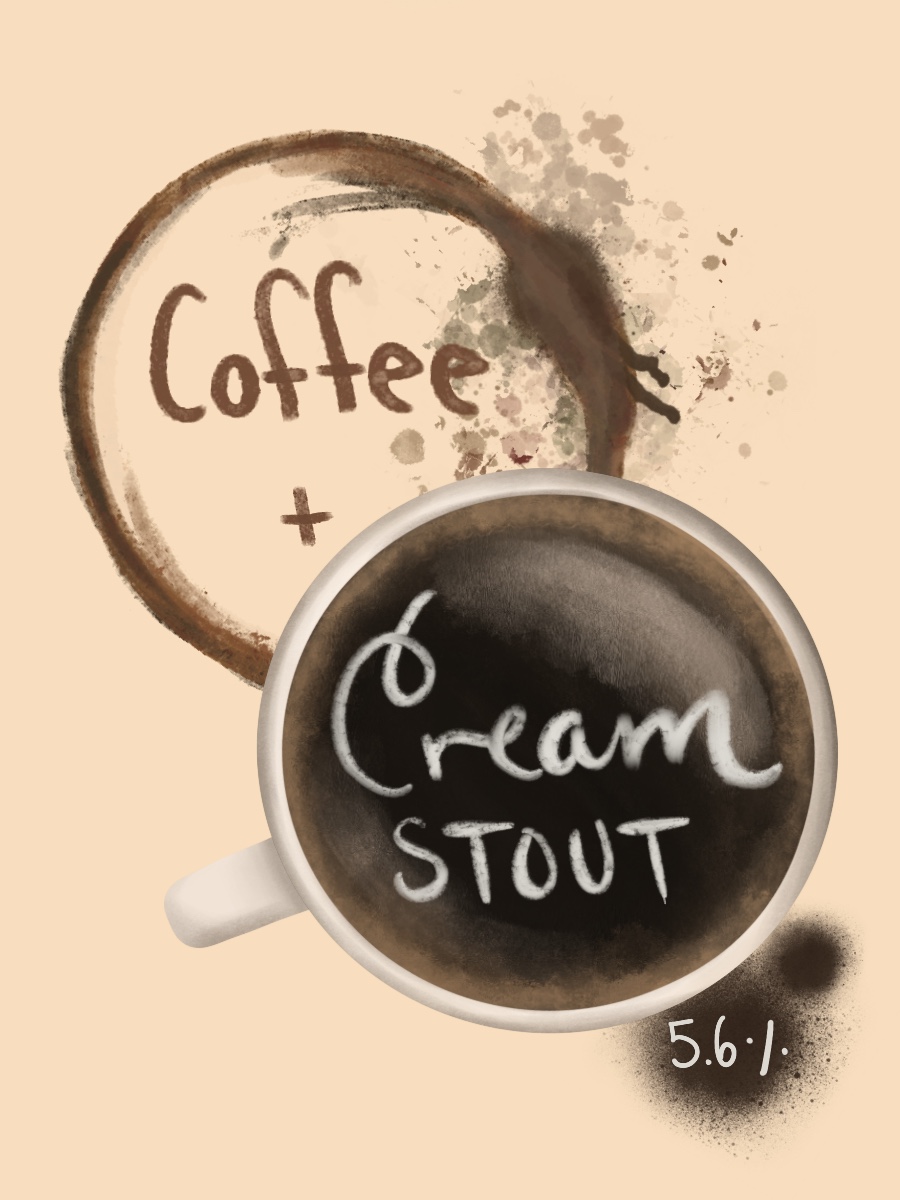 Coffee
+
Cream
STOUT
5.6%